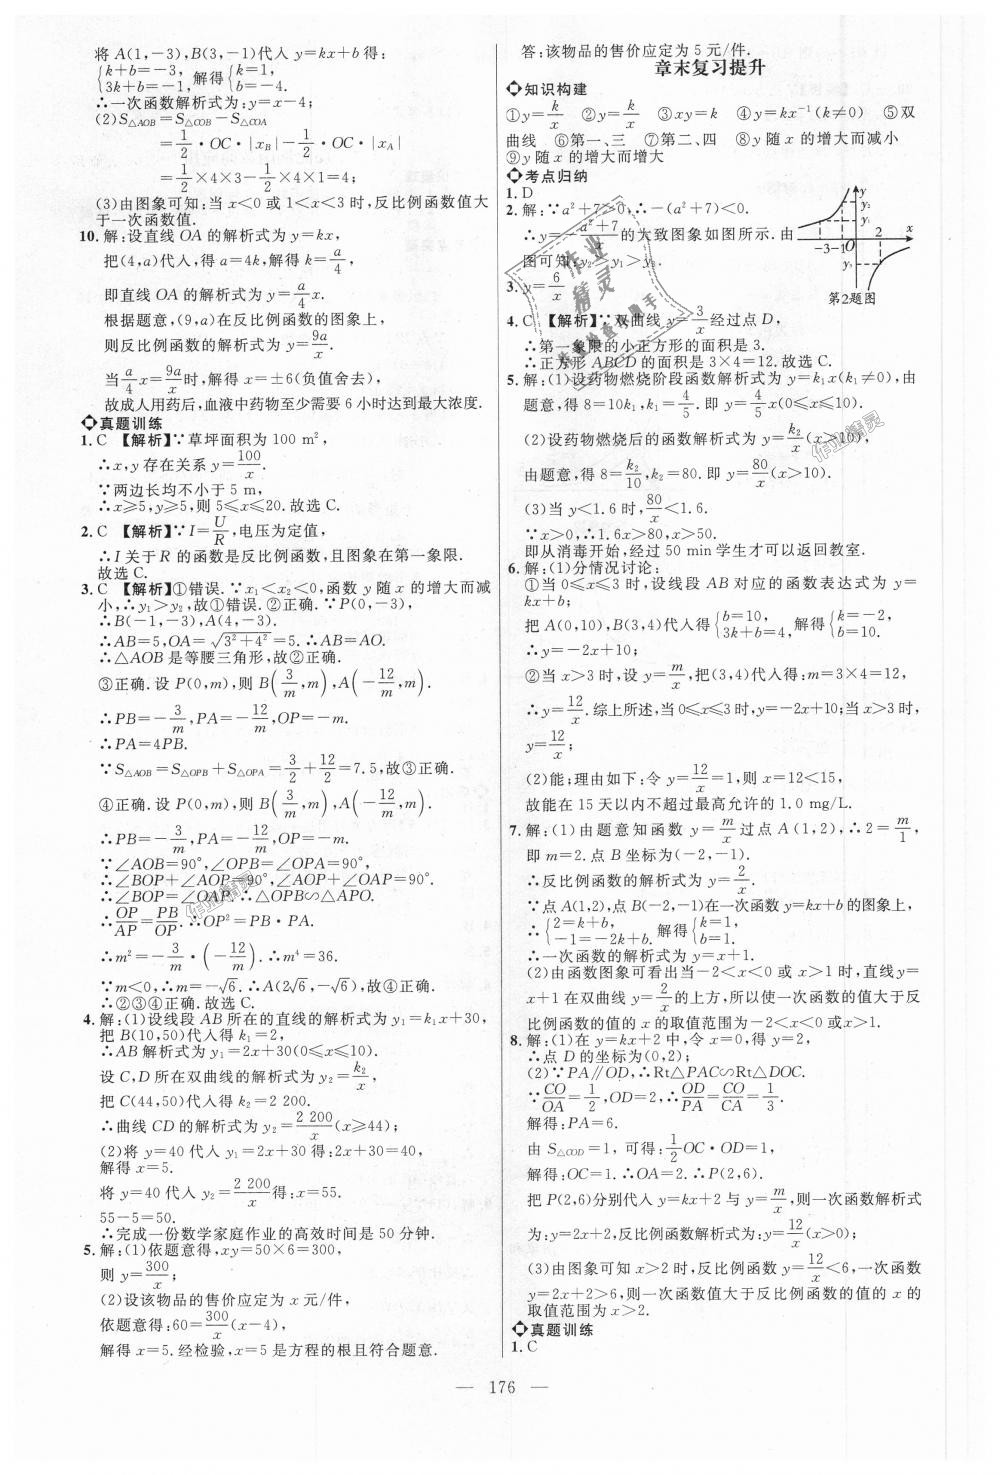 将 A(1,-3),B(3,-1)代入 y=kx+b 得:
{k+b=-3, 3k+b=-1, 解得{k=1, b=-4.
∴一次函数解析式为:y=x-4;
(2)S△AOB=S△COB-S△COA
=1/2·OC·|xB|-1/2·OC·|xA|
=1/2×4×3-1/2×4×1=4;
(3)由图象可知:当 x<0 或 1<x<3 时,反比例函数值大
于一次函数值.
10.解:设直线 OA 的解析式为 y=kx,
把(4,a)代入,得 a=4k,解得 k=a/4,
即直线 OA 的解析式为 y=a/4 x.
根据题意,(9,a)在反比例函数的图象上,
则反比例函数的解析式为 y=9a/x.
当a/4 x=9a/x时,解得 x=±6(负值舍去),
故成人用药后,血液中药物至少需要 6 小时达到最大浓度.
真题训练
1.C 【解析】∵草坪面积为 100 m²,
∴x,y 存在关系 y=100/x.
∵两边长均不小于 5 m,
∴x≥5,y≥5,则 5≤x≤20.故选 C.
2.C 【解析】∵I=U/R,电压为定值,
∴I 关于 R 的函数是反比例函数,且图象在第一象限.
故选 C.
3.C 【解析】①错误.∵x₁<x₂<0,函数 y 随 x 的增大而减
小,∴y₁>y₂,故①错误.②正确.∵P(0,-3),
∴B(-1,-3),A(4,-3).
∴AB=5,OA=√(3²+4²)=5.∴AB=AO.
∴△AOB 是等腰三角形,故②正确.
③正确.设 P(0,m),则 B(3/m,m),A(-12/m,m).
∴PB=-3/m,PA=-12/m,OP=-m.
∴PA=4PB.
∵S△AOB=S△OPB+S△OPA=3/2+12/2=7.5,故③正确.
④正确.设 P(0,m),则 B(3/m,m),A(-12/m,m).
∴PB=-3/m,PA=-12/m,OP=-m.
∵∠AOB=90°,∠OPB=∠OPA=90°,
∴∠BOP+∠AOP=90°,∠AOP+∠OAP=90°.
∴∠BOP=∠OAP.∴△OPB∽△APO.
∴OP/AP=PB/OP.∴OP²=PB·PA.
∴m²=-3/m·(-12/m).∴m⁴=36.
∵m<0,∴m=-√6.∴A(2√6,-√6),故④正确.
∴②③④正确.故选 C.
4.解:(1)设线段 AB 所在的直线的解析式为 y₁=k₁x+30,
把 B(10,50)代入得 k₁=2,
∴AB 解析式为 y₁=2x+30(0≤x≤10).
设 C,D 所在双曲线的解析式为 y₂=k₂/x,
把 C(44,50)代入得 k₂=2 200.
∴曲线 CD 的解析式为 y₂=2 200/x(x≥44);
(2)将 y=40 代入 y₁=2x+30 得:2x+30=40,
解得 x=5.
将 y=40 代入 y₂=2 200/x得:x=55.
55-5=50.
∴完成一份数学家庭作业的高效时间是 50 分钟.
5.解:(1)依题意得,xy=50×6=300,
则 y=300/x;
(2)设该物品的售价应定为 x 元/件,
依题意得:60=300/x(x-4),
解得 x=5.经检验,x=5 是方程的根且符合题意.
答:该物品的售价应定为 5 元/件.
章末复习提升
知识构建
①y=k/x ②y=k/x ③xy=k ④y=kx⁻¹(k≠0) ⑤双
曲线 ⑥第一、三 ⑦第二、四 ⑧y 随 x 的增大而减小
⑨y 随 x 的增大而增大
考点归纳
1.D
2.解:∵a²+7>0,∴-(a²+7)<0.
∴y=-a²+7/x的大致图象如图所示.由
图可知:y₂>y₁>y₃.
y
y₂
y₁
-3 -1 O 2 x
y₃
第2题图
3.y=6/x
4.C 【解析】∵双曲线 y=3/x经过点 D,
∴第一象限的小正方形的面积是 3.
∴正方形 ABCD 的面积是 3×4=12.故选 C.
5.解:(1)设药物燃烧阶段函数解析式为 y=k₁x(k₁≠0),由
题意,得 8=10k₁,k₁=4/5.即 y=4/5 x(0≤x≤10).
(2)设药物燃烧后的函数解析式为 y=k₂/x(x>10),
由题意,得 8=k₂/10,k₂=80.即 y=80/x(x>10).
(3)当 y<1.6 时,80/x<1.6.
∵x>0,∴1.6x>80,x>50.
即从消毒开始,经过 50 min 学生才可以返回教室.
6.解:(1)分情况讨论:
①当 0≤x≤3 时,设线段 AB 对应的函数表达式为 y=
kx+b;
把 A(0,10),B(3,4)代入得{b=10, 3k+b=4, 解得{k=-2, b=10.
∴y=-2x+10;
②当 x>3 时,设 y=m/x,把(3,4)代入得:m=3×4=12,
∴y=12/x.综上所述,当 0≤x≤3 时,y=-2x+10;当x>3 时,
y=12/x;
(2)能;理由如下:令 y=12/x=1,则 x=12<15,
故能在 15 天以内不超过最高允许的 1.0 mg/L.
7.解:(1)由题意知函数 y=m/x过点 A(1,2),∴2=m/1,
即 m=2.点 B 坐标为(-2,-1).
∴反比例函数的解析式为 y=2/x.
∵点 A(1,2),点 B(-2,-1)在一次函数 y=kx+b 的图象上,
∴{2=k+b, -1=-2k+b. 解得{k=1, b=1.
∴一次函数的解析式为 y=x+1.
(2)由函数图象可看出当-2<x<0 或 x>1 时,直线 y=
x+1 在双曲线 y=2/x的上方,所以使一次函数的值大于反
比例函数的值的 x 的取值范围为-2<x<0或x>1.
8.解:(1)在 y=kx+2 中,令 x=0,得 y=2,
∴点 D 的坐标为(0,2);
(2)∵PA∥OD,∴Rt△PAC∽Rt△DOC.
∵CO/OA=1/2,OD=2,∴OD/PA=CO/CA=1/3.
解得:PA=6.
由 S△COD=1,可得:1/2 OC·OD=1,
解得:OC=1.∴OA=2.∴P(2,6).
把 P(2,6)分别代入 y=kx+2 与 y=m/x,则一次函数解析式
为:y=2x+2,反比例函数解析式为:y=12/x(x>0);
(3)由图象可知 x>2 时,反比例函数 y=12/x<6,一次函数
y=2x+2>6,则一次函数值大于反比例函数的值的 x 的
取值范围为 x>2.
真题训练
1.C
— 176 —